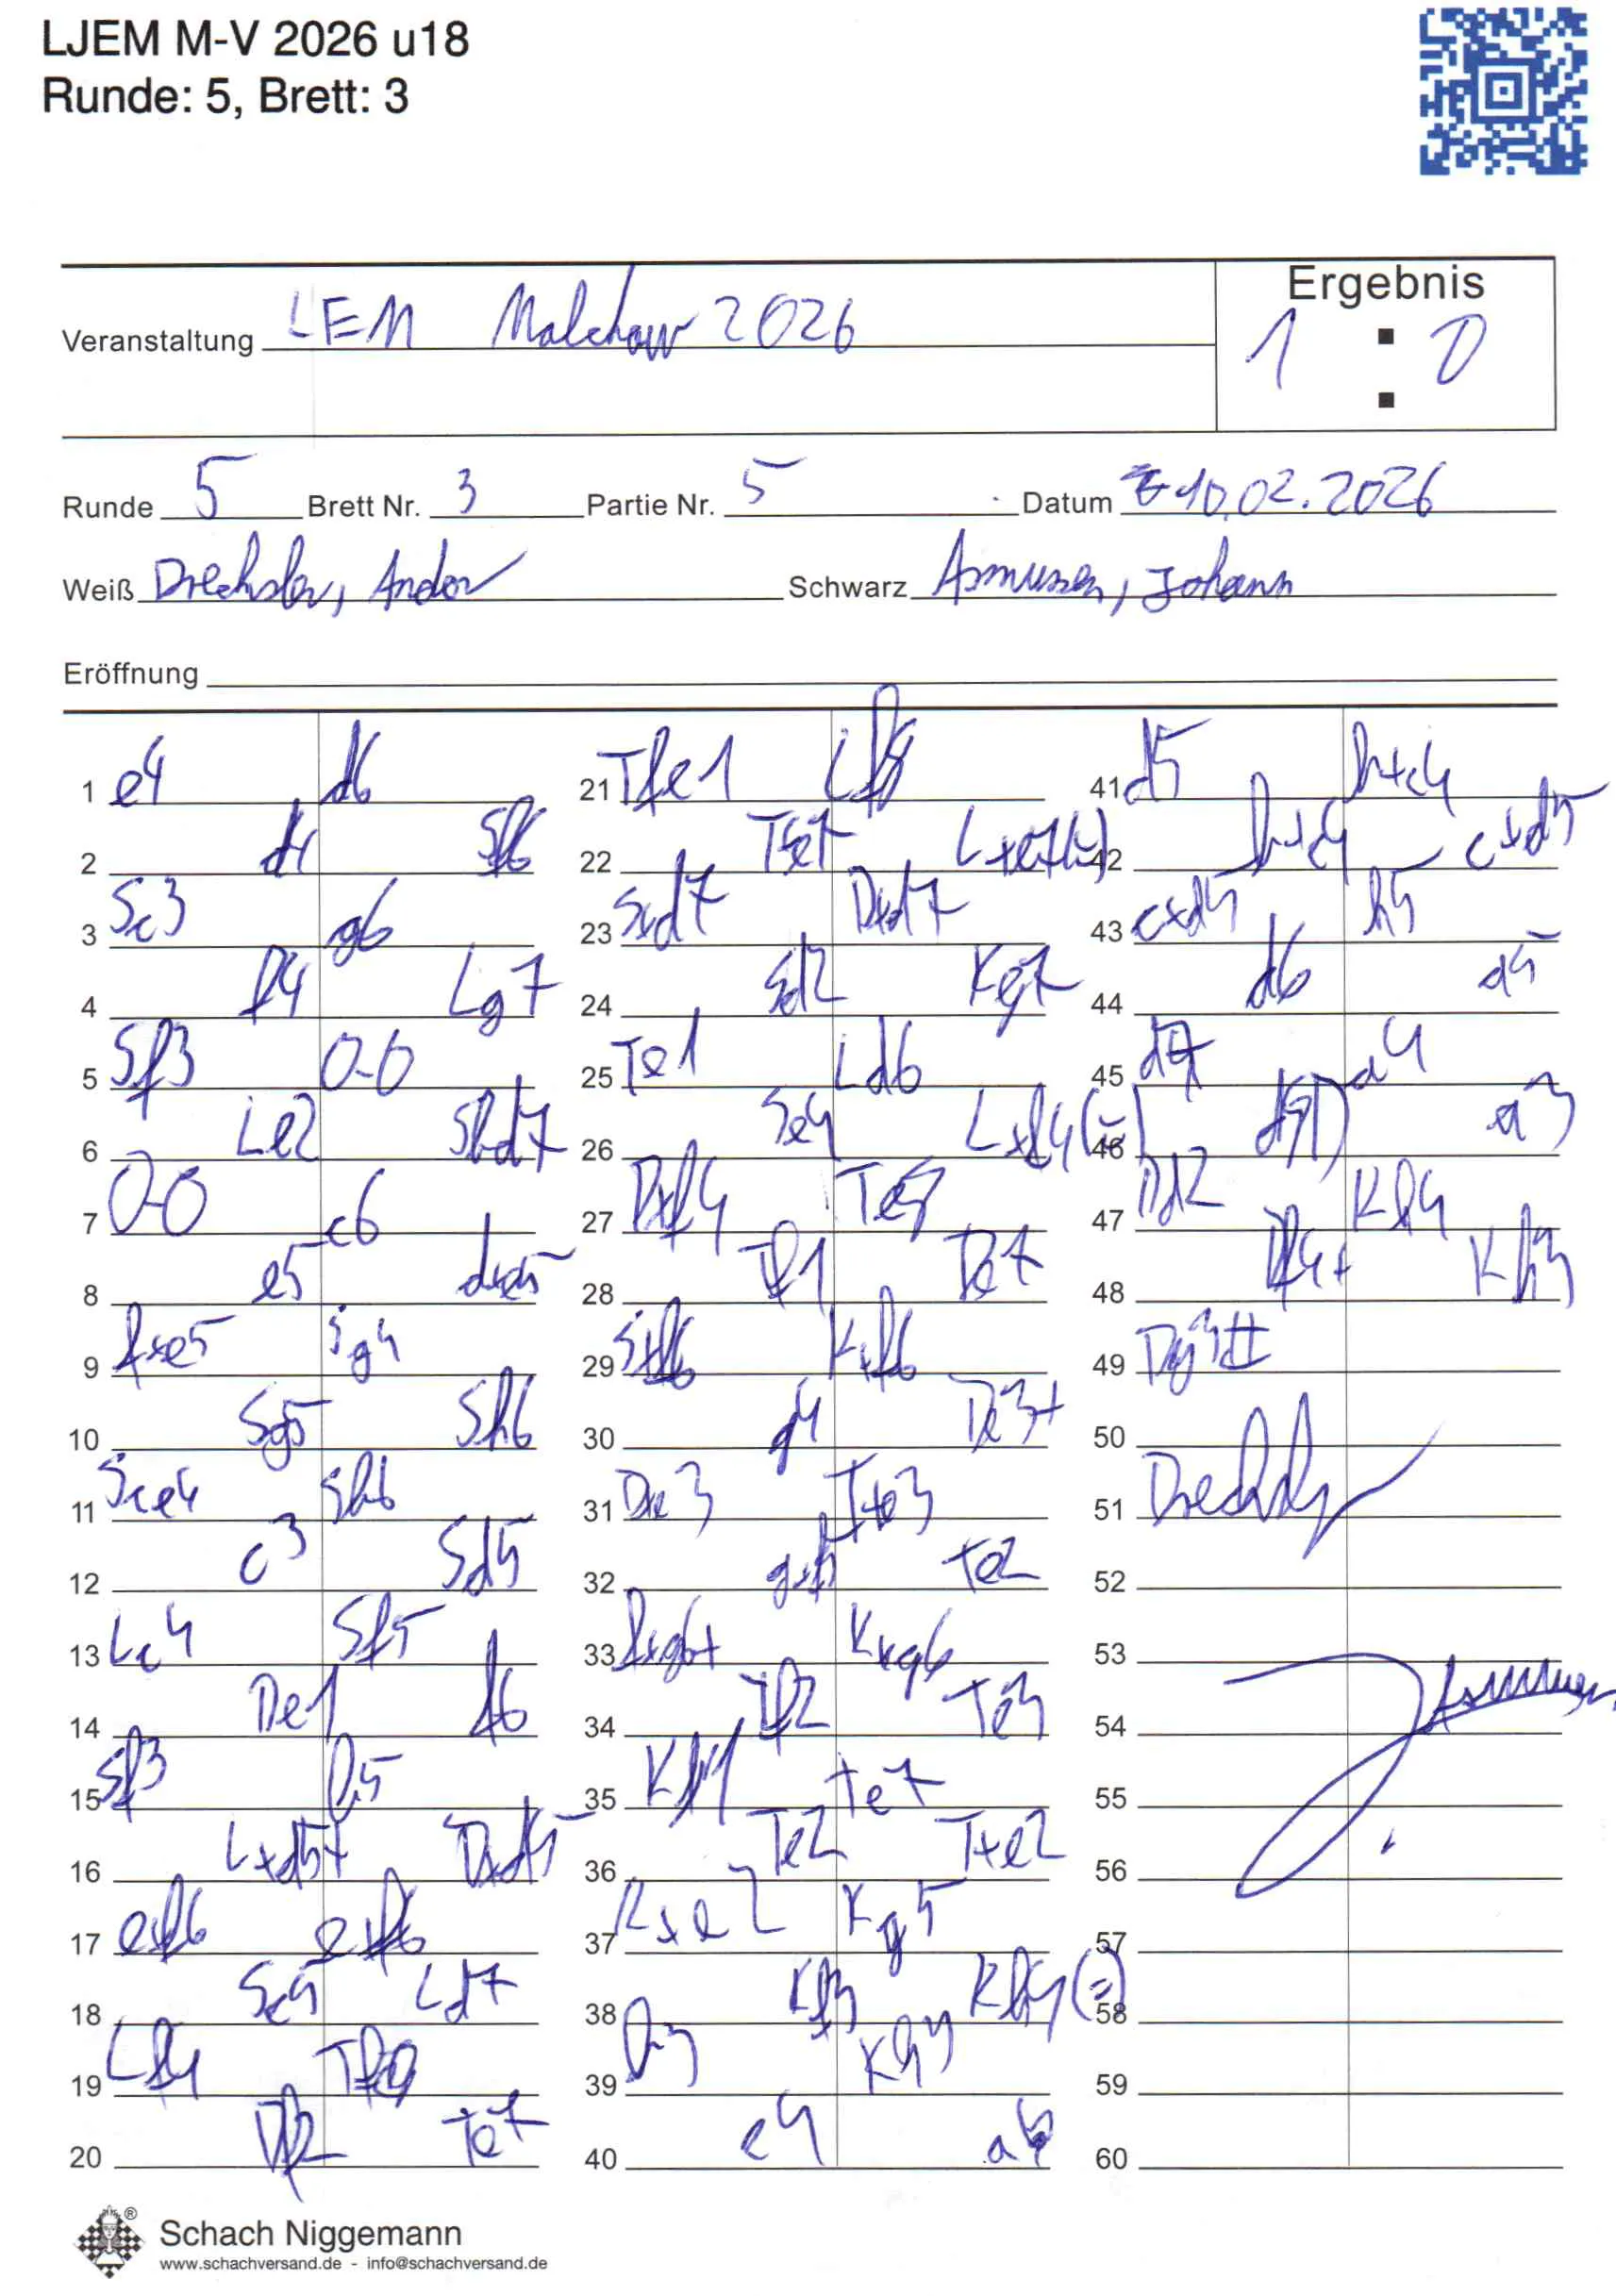 LJEM M-V 2026 u18
Runde: 5, Brett: 3
Ergebnis
Veranstaltung LEM Malchow 2026
1 : 0
Runde 5 Brett Nr. 3 Partie Nr. 5 Datum 10.02.2026
Weiß Drechsler, Andor Schwarz Asmussen, Johann
Eröffnung
1 e4 d6
2 d4 Sf6
3 Sc3 g6
4 f4 Lg7
5 Sf3 0-0
6 Le2 Sbd7
7 0-0 c6
8 e5 dxe5
9 fxe5 Sg4
10 Sg5 Sh6
11 Sce4 Sb6
12 c3 Sd5
13 Lc4 Sf5
14 De1 f6
15 Sf3 b5
16 Lxd5+ Dxd5
17 exf6 exf6
18 Sc5 Ld7
19 Lf4 Tf7
20 Df2 Te7
21 Tfe1 Lf8
22 Txe7 Lxe7(=)
23 Sxd7 Dxd7
24 Sd2 Kg7
25 Te1 Ld6
26 Se4 Lxf4(=)
27 Dxf4 Te8
28 Tf1 De7
29 Sxf6 Kxf6
30 g4 De3+
31 Dxe3 Txe3
32 gxf5 Te2
33 fxg6+ Kxg6
34 Tf2 Te3
35 Kf1 Te7
36 Te2 Txe2
37 Kxe2 Kg5
38 Kf3 Kh4(=)
39 b3 Kh3
40 c4 a6
41 d5 bxc4
42 bxc4 cxd5
43 cxd5 h5
44 d6 a5
45 d7 a4
46 d8D a3
47 Dd2 Kh4
48 Df4+ Kh3
49 Dg3#
50
51 Drechsler
52
53
54 J. Asmussen
55
56
57
58
59
60
Schach Niggemann
www.schachversand.de - info@schachversand.de